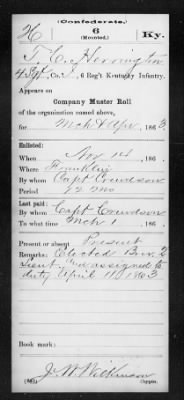 (Confederate.)
H 6 Ky.
(Mounted.)
T. C. Herrington
4 Sgt, Co. , 6 Reg't Kentucky Infantry.
Appears on
Company Muster Roll
of the organization named above,
for Mch & Apr, 1863.
Enlisted:
When 186 .
Where Franklin
By whom Capt Crewdson
Period 12 mo
Last paid:
By whom Capt Crewdson
To what time Mch 1, 186 .
Present or absent Present
Remarks: Elected Bvt. 2
Lieut and assigned to
duty April 11 1863
Book mark:
J. W. Wilkinson
Copyist.